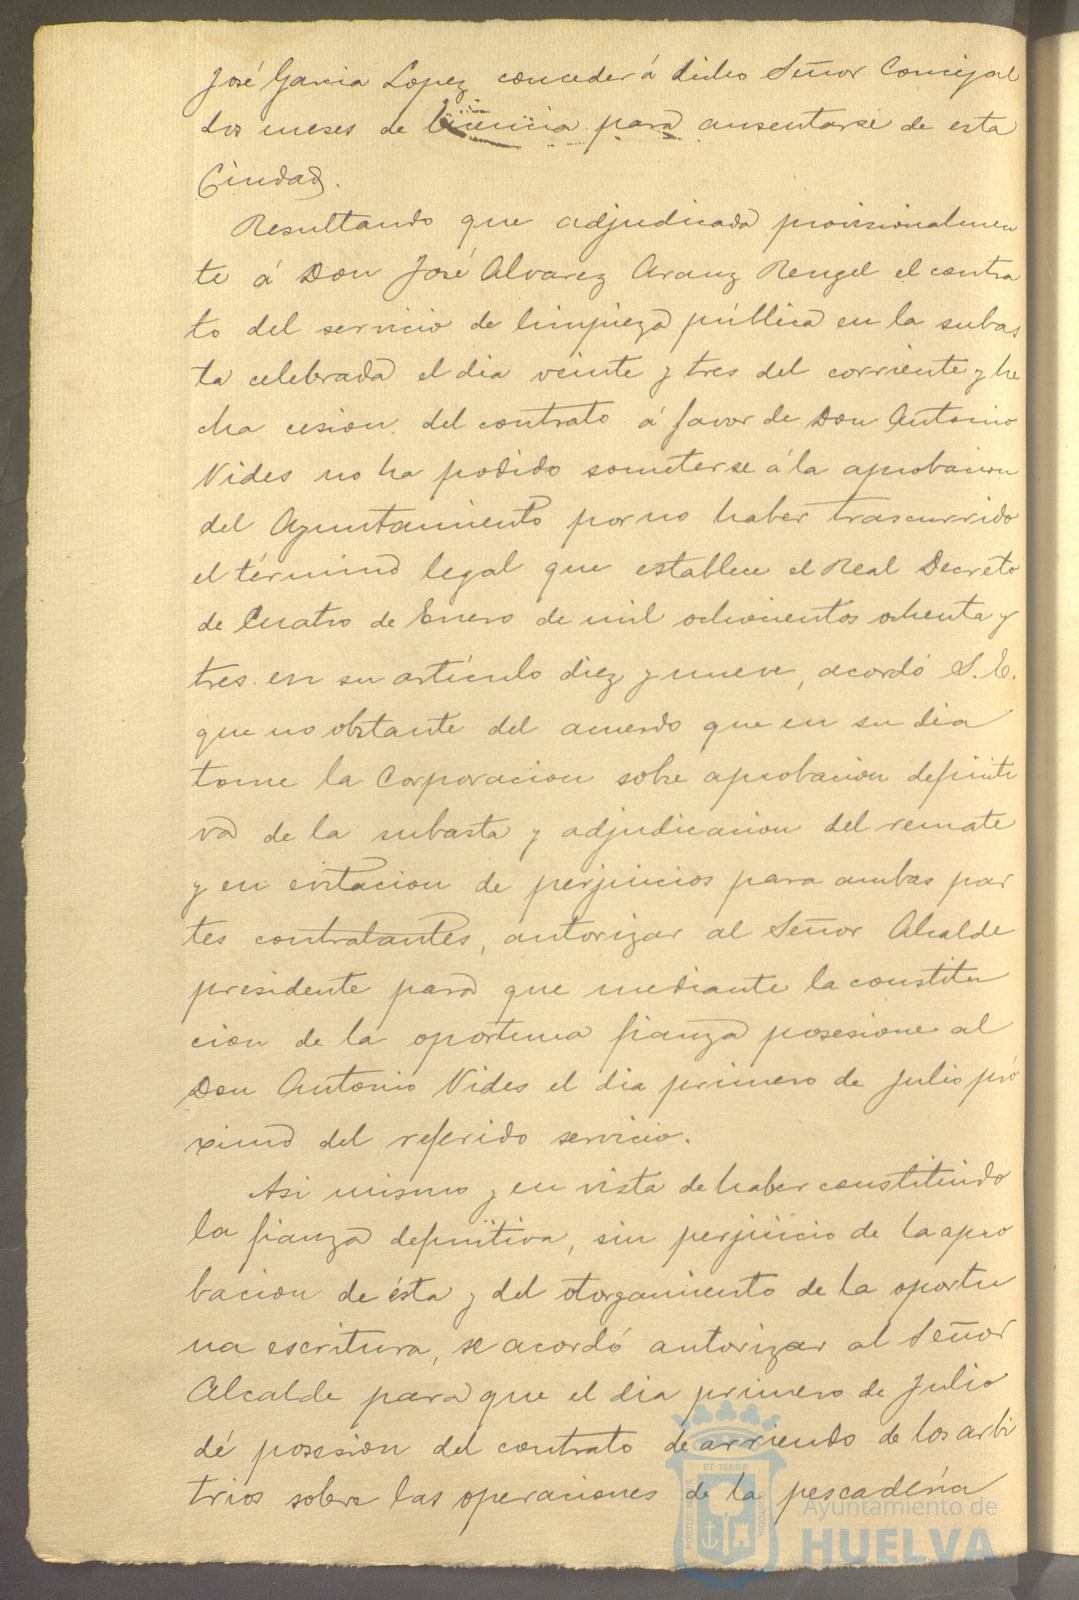 José Garcia Lopez conceder á dicho Señor Concejal
dos meses de licencia para ausentarse de esta
Ciudad.
Resultando que adjudicada provisionalmen
te á Don José Alvarez Aranz Rengel el contra
to del servicio de limpieza pública en la subas
ta celebrada el dia veinte y tres del corriente y he
cha cesion del contrato á favor de Don Antonio
Vides no ha podido someterse á la aprobacion
del Ayuntamiento por no haber trascurrido
el término legal que establece el Real Decreto
de Cuatro de Enero de mil ochocientos ochenta y
tres en su artículo diez y nueve, acordó S. E.
que no obstante del acuerdo que en su dia
tome la Corporacion sobre aprobacion definiti
va de la subasta y adjudicacion del remate
y en evitacion de perjuicios para ambas par
tes contratantes, autorizar al Señor Alcalde
presidente para que mediante la constitu
cion de la oportuna fianza posesione al
Don Antonio Vides el dia primero de Julio pró
ximo del referido servicio.
Asi mismo y en vista de haber constituido
la fianza definitiva, sin perjuicio de la apro
bacion de ésta y del otorgamiento de la oportu
na escritura, se acordó autorizar al Señor
Alcalde para que el dia primero de Julio
dé posesion del contrato de arriendo de los arbi
trios sobre las operaciones de la pescadería
ET TERRÆ
PORTUS MARIS
CUSTODIA
Ayuntamiento de
HUELVA